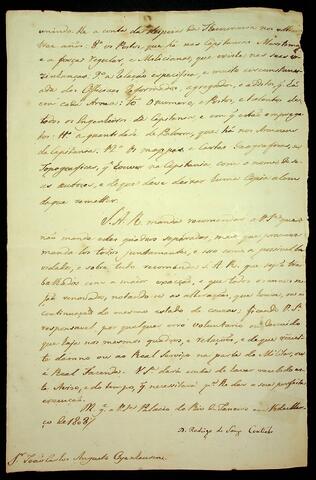 a conta das despezas da Thesouraria nos ultimos
tres annos: 8º os Portos, que há nas Capitanias Maritimas
e a força Regular, e Miliciana, que existe nas suas
9º a relação especifica, e muito circunstanciada
da dos Officiaes Reformados, aggregados, e addidos, q. há
em cada Arma: 10 O numero, e Postos, e talentos de
todos os Engenheiros da Capitania, e em q. estão empregados
11 a quantidade de Polvora, que há nos Armazens
da Capitania: 12 os mappas, e Cartas Geograficas, ou
Topograficas, q. houver na Capitania com o nome de
seus autores, e de que deve deixar huma Copia alem
da que remetter.
S. A. R. manda recomendar a V. Sª que
não mande estes quadros separados, mas que procure
mandalos todos juntamente, e isso com a possivel
e sobre tudo recomenda S. A. R. que seja trabalhados
com a maior exacção, e que todos os annos
seja renovado, notando-se as alteraçoens, que houve, ou a
continuação do mesmo estado de couzas; ficando V. Sª
responsavel por qualquer erro voluntario ou descuido
que haja nos mesmos quadros, e relaçoens, e de que rezulte
damno ou ao Real Serviço na parte Militar, ou
á Real Fazenda. V. Sª dará conta de haver recebido este
Avizo, e do tempo, q. necessitará pª lhe dar a sua perfeita
execução.
Ds. gde. a V. Sª Palacio do Rio de Janeiro em
de 1808
D. Rodrigo de Souza Coutinho
Sr. João Carlos Augusto Oyenhausen